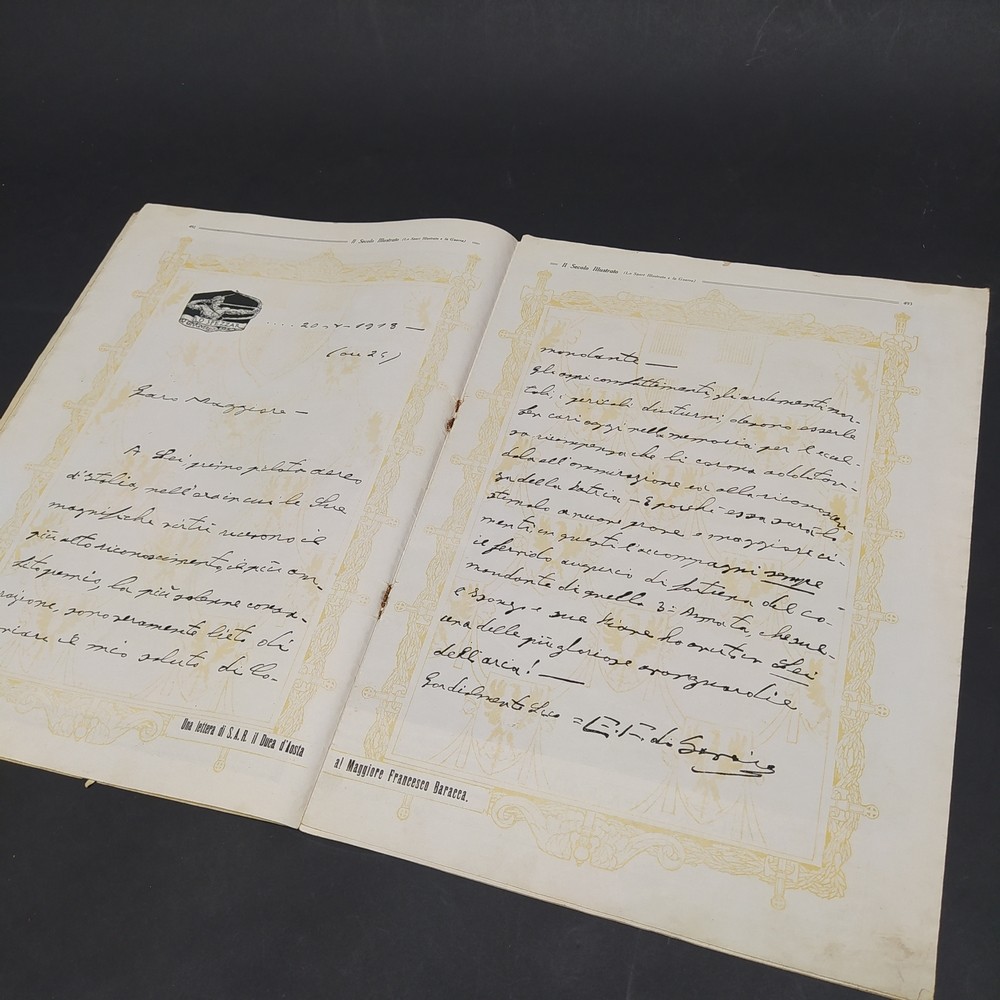 Il Secolo Illustrato (Lo Sport Illustrato e la Guerra)
20-5-1918 —
(ore 24)
Caro Maggiore —
A Lei primo pilota aereo
d'Italia, nell'ora in cui le Sue
magnifiche virtù ricevono il
più alto riconoscimento, il più am-
bito premio, la più solenne consa-
crazione, sono veramente lieto di
inviare il mio saluto di Co-
Una lettera di S.A.R. il Duca d'Aosta
Il Secolo Illustrato (Lo Sport Illustrato e la Guerra)
491
mandante —
Gli aspri combattimenti, gli ardimenti mor-
tali, i pericoli diuturni devono esserle
ben cari oggi nella memoria per l'eccel-
sa ricompensa che li corona additan-
dola all'ammirazione ed alla riconoscen-
za della Patria — E poichè essa sarà lo
stimolo a nuove prove e maggiori ci-
menti, in questi l'accompagni sempre
il fervido augurio di fortuna del Co-
mandante di quella 3ª Armata, che sul-
l'Isonzo e sul Piave ha avuto in Lei
una delle più gloriose avanguardie
dell'aria! —
Cordialmente Suo = E. F. di Savoia
al Maggiore Francesco Baracca.